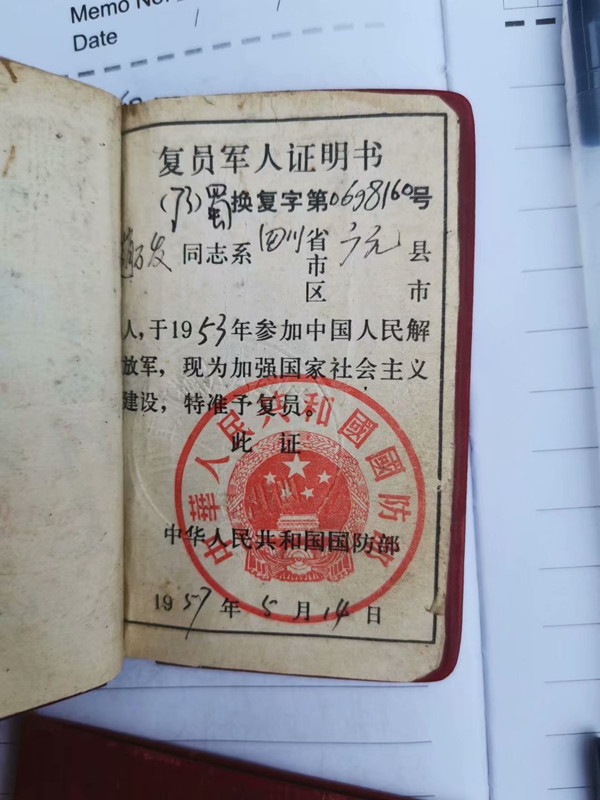 Memo No.
Date
复员军人证明书
(73)蜀换复字第0698160号
发 同志系 四川 省 广元 县
市
区 市
人, 于1953年参加中国人民解
放军, 现为加强国家社会主义
建设, 特准予复员。
此证
中華人民共和國國防部
中华人民共和国国防部
1957年5月14日